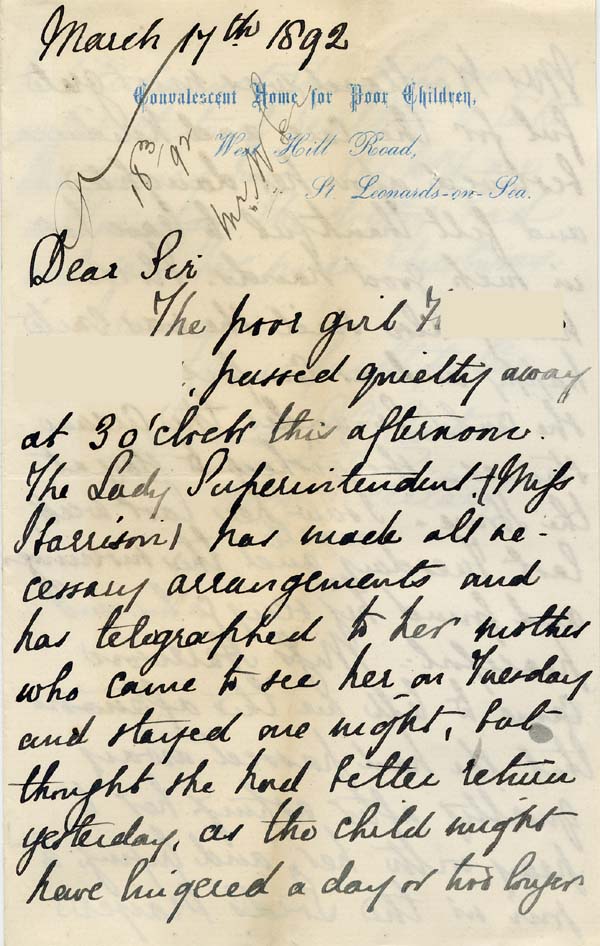 March 17th 1892
Convalescent Home for Poor Children,
West Hill Road,
St Leonards-on-Sea.
18/3/92
Mr
Dear Sir
The poor girl F
, passed quietly away
at 3 o'clock this afternoon.
The Lady Superintendent (Miss
Harrison) has made all ne-
cessary arrangements and
has telegraphed to her mother
who came to see her on Tuesday
and stayed one night, but
thought she had better return
yesterday, as the child might
have lingered a day or two longer